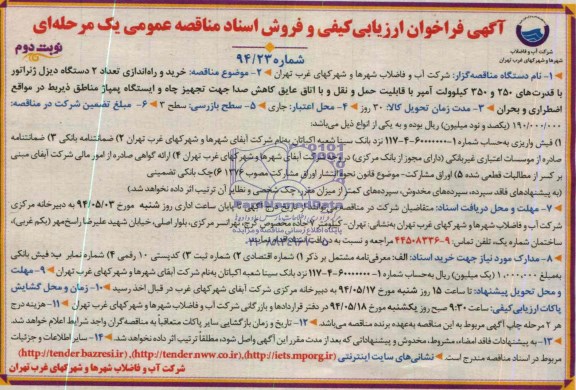 آگهی فراخوان ارزیابی‌کیفی و فروش اسناد مناقصه عمومی یک مرحله‌ای
شرکت آب و فاضلاب
شهرها و شهرکهای غرب تهران
شماره ۹۴/۲۳
نوبت دوم
۱- نام دستگاه مناقصه‌گزار: شرکت آب و فاضلاب شهرها و شهرکهای غرب تهران ۲- موضوع مناقصه: خرید و راه‌اندازی تعداد ۲ دستگاه دیزل ژنراتور
با قدرت‌های ۲۵۰ و ۳۵۰ کیلوولت آمپر با قابلیت حمل و نقل و با اتاق عایق کاهش صدا جهت تجهیز چاه و ایستگاه پمپاژ مناطق ذیربط در مواقع
اضطراری و بحران ۳- مدت زمان تحویل کالا: ۳۰ روز ۴- محل اعتبار: جاری ۵- سطح بازرسی: سطح ۳ ۶- مبلغ تضمین شرکت در مناقصه:
۱۹۰/۰۰۰/۰۰۰ (یکصد و نود میلیون) ریال بوده و به یکی از انواع ذیل می‌باشد:
۱) فیش واریزی به‌حساب شماره ۱-۶۰۰۰۰۰۰-۴-۱۱۷ نزد بانک سینا شعبه اکباتان به‌نام شرکت آبفای شهرها و شهرکهای غرب تهران ۲) ضمانتنامه بانکی ۳) ضمانتنامه
صادره از موسسات اعتباری غیربانکی (دارای مجوز از بانک مرکزی) در وجه شرکت آبفای شهرها و شهرکهای غرب تهران ۴) ارائه گواهی صادره از امور مالی شرکت آبفای مبنی
بر کسر از مطالبات قطعی شده ۵) اوراق مشارکت- موضوع قانون نحوه انتشار اوراق مشارکت مصوب ۱۳۷۶ ۶) چک بانکی تضمینی
(به پیشنهادهای فاقد سپرده، سپرده‌های مخدوش، سپرده‌های کمتر از میزان مقرر، چک شخصی و نظایر آن ترتیب اثر داده نخواهد شد.)
۷- مهلت و محل دریافت اسناد: متقاضیان شرکت در مناقصه پایان ساعت اداری روز شنبه مورخ ۹۴/۰۵/۰۳ به دبیرخانه مرکزی
شرکت آب و فاضلاب شهرها و شهرکهای غرب تهران به‌نشانی: تهران- جاده مخصوص کرج، تهرانسر مرکزی، بلوار اصلی، خیابان شهید علیرضا راسخ‌مهر (یکم غربی)،
ساختمان شماره یک، تلفن تماس: ۹-۴۴۵۰۸۳۳۶ مراجعه و نسبت به دریافت اسناد اقدام نمایند.
۸- مدارک مورد نیاز جهت خرید اسناد: الف: معرفی‌نامه مشتمل بر ذکر ۱) شماره اقتصادی ۲) شماره ثبت ۳) کدپستی ۱۰ رقمی ۴) شماره نمابر ب: فیش بانکی
به‌مبلغ ۱/۰۰۰/۰۰۰ (یک میلیون) ریال به حساب شماره ۱-۶۰۰۰۰۰۰-۴-۱۱۷ نزد بانک سینا شعبه اکباتان به‌نام شرکت آبفای شهرها و شهرکهای غرب تهران ۹- مهلت
و محل تحویل پیشنهاد: تا ساعت ۱۵ روز شنبه مورخ ۹۴/۰۵/۱۷ به دبیرخانه مرکزی شرکت آبفای شهرها و شهرکهای غرب تهران در قبال اخذ رسید ۱۰- زمان و محل گشایش
پاکات ارزیابی‌کیفی: ساعت ۹:۳۰ صبح روز یکشنبه مورخ ۹۴/۰۵/۱۸ در دفتر قراردادها و بازرگانی شرکت آب و فاضلاب شهرها و شهرکهای غرب تهران ۱۱- هزینه درج
هر ۲ مرحله چاپ آگهی مربوط به این مناقصه به‌عهده برنده مناقصه می‌باشد ۱۲- تاریخ و زمان بازگشایی سایر پاکات متعاقباً به مناقصه‌گران واجد شرایط اعلام خواهد شد.
۱۳- به پیشنهادات فاقد امضاء، مشروط، مخدوش و پیشنهاداتی که بعد از مدت مقرر این آگهی واصل شود، مطلقاً ترتیب اثر داده نخواهد شد. ۱۴- سایر اطلاعات و جزئیات
مربوط در اسناد مناقصه مندرج است. نشانی‌های سایت اینترنتی (http://iets.mporg.ir)، (http://tender.nww.co.ir)، (http://tender.bazresi.ir)
شرکت آب و فاضلاب شهرها و شهرکهای غرب تهران